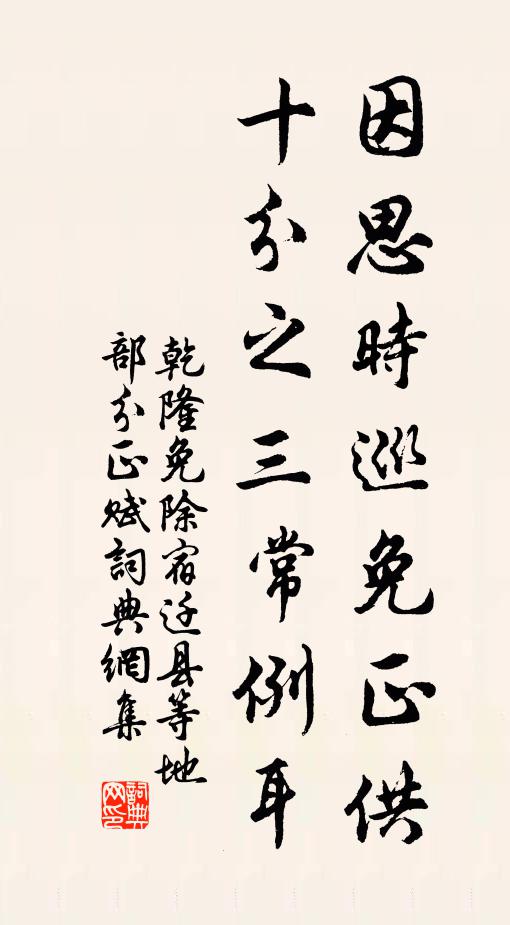 因思時巡免正供
十分之三常例耳
乾隆免除宿迁县等地
部分正赋詞典網集
詞典
网印